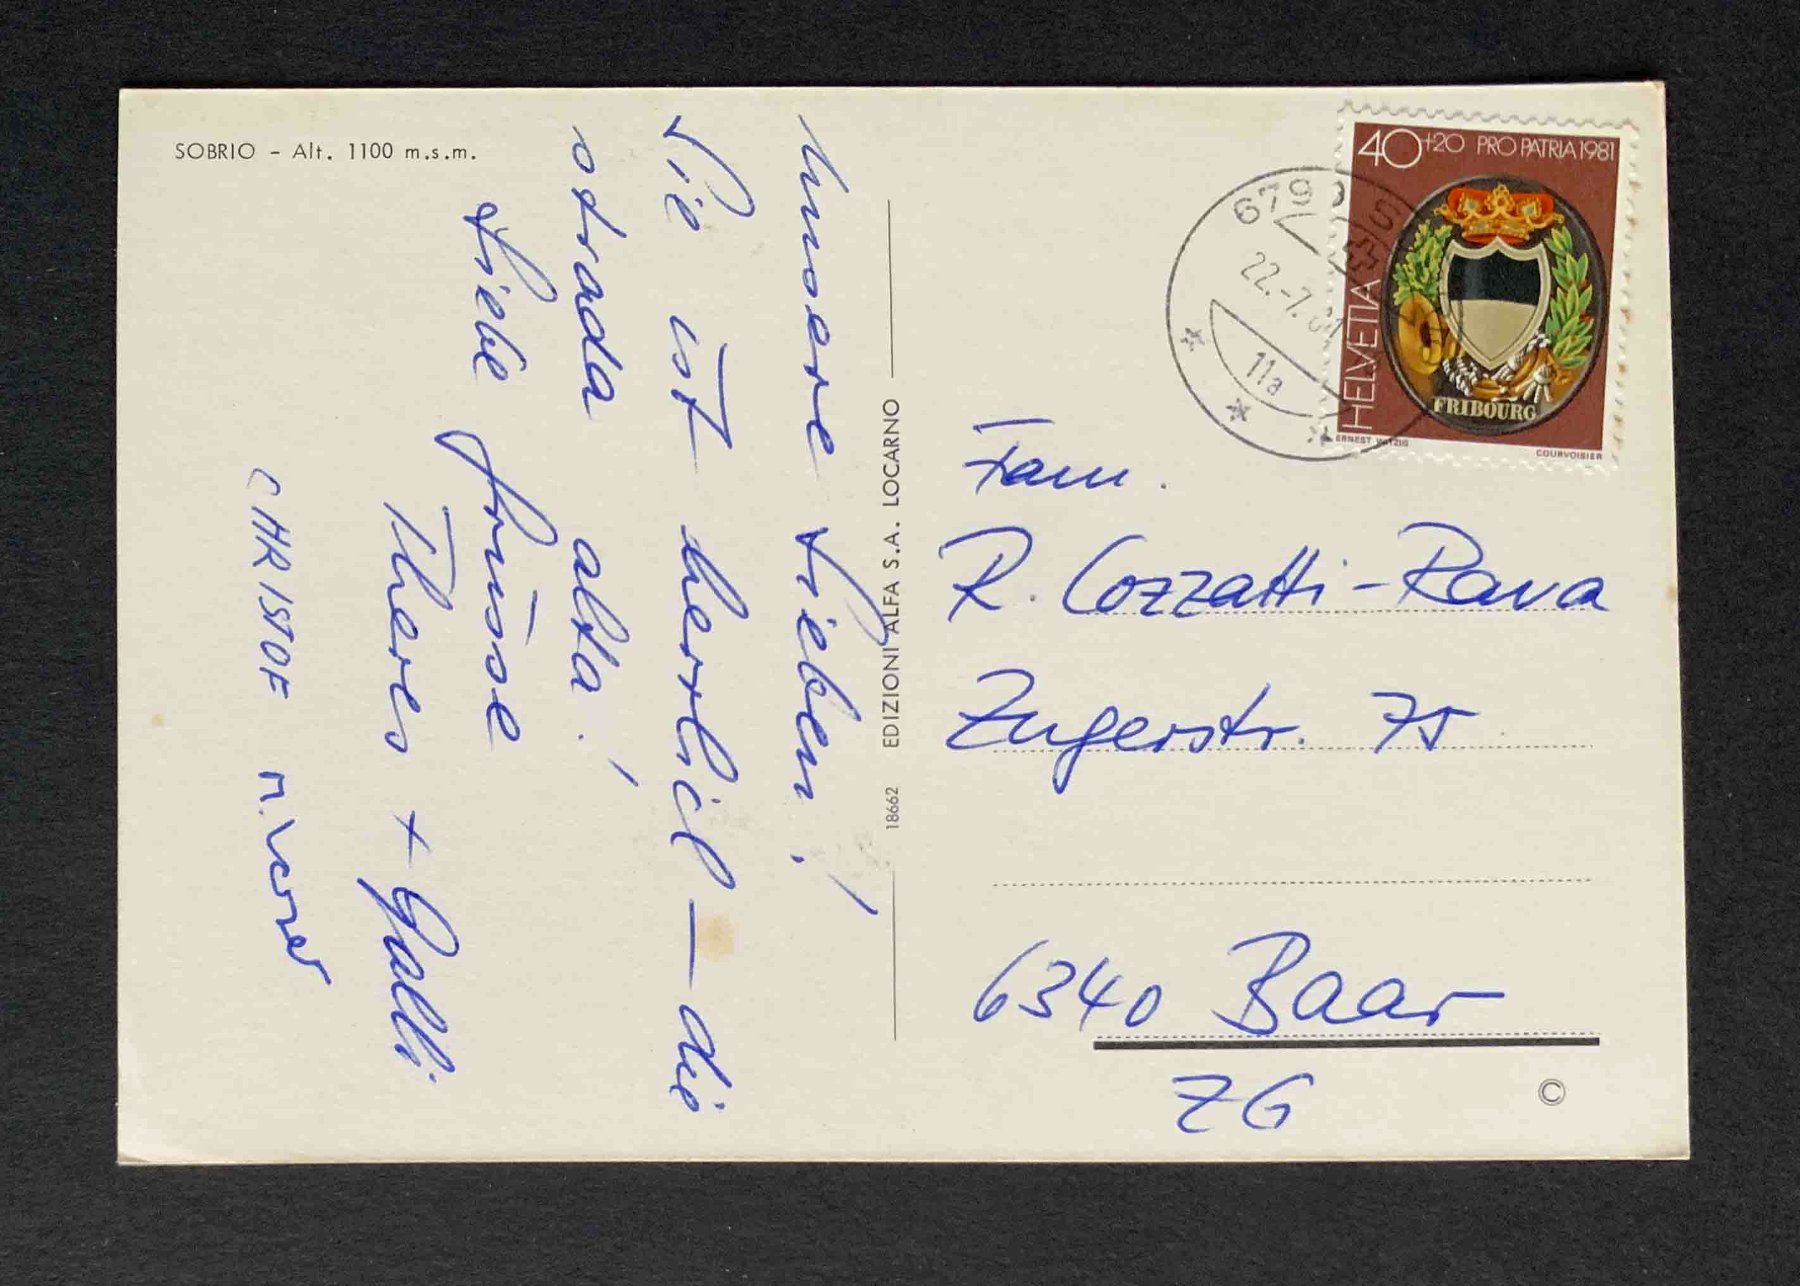 SOBRIO – Alt. 1100 m.s.m.
Unsere Lieben!
Sie ist herrlich – die
strada alta!
Liebe Grüsse
Theres + Galli
CHRISTOF
18662 EDIZIONI ALFA S.A. LOCARNO
40+20 PRO PATRIA 1981
HELVETIA
FRIBOURG
ERNEST WITZIG
COURVOISIER
679
22.-7.
11a
Fam.
R. Cozzatti-Rava
Zugerstr. 75
6340 Baar
ZG
©